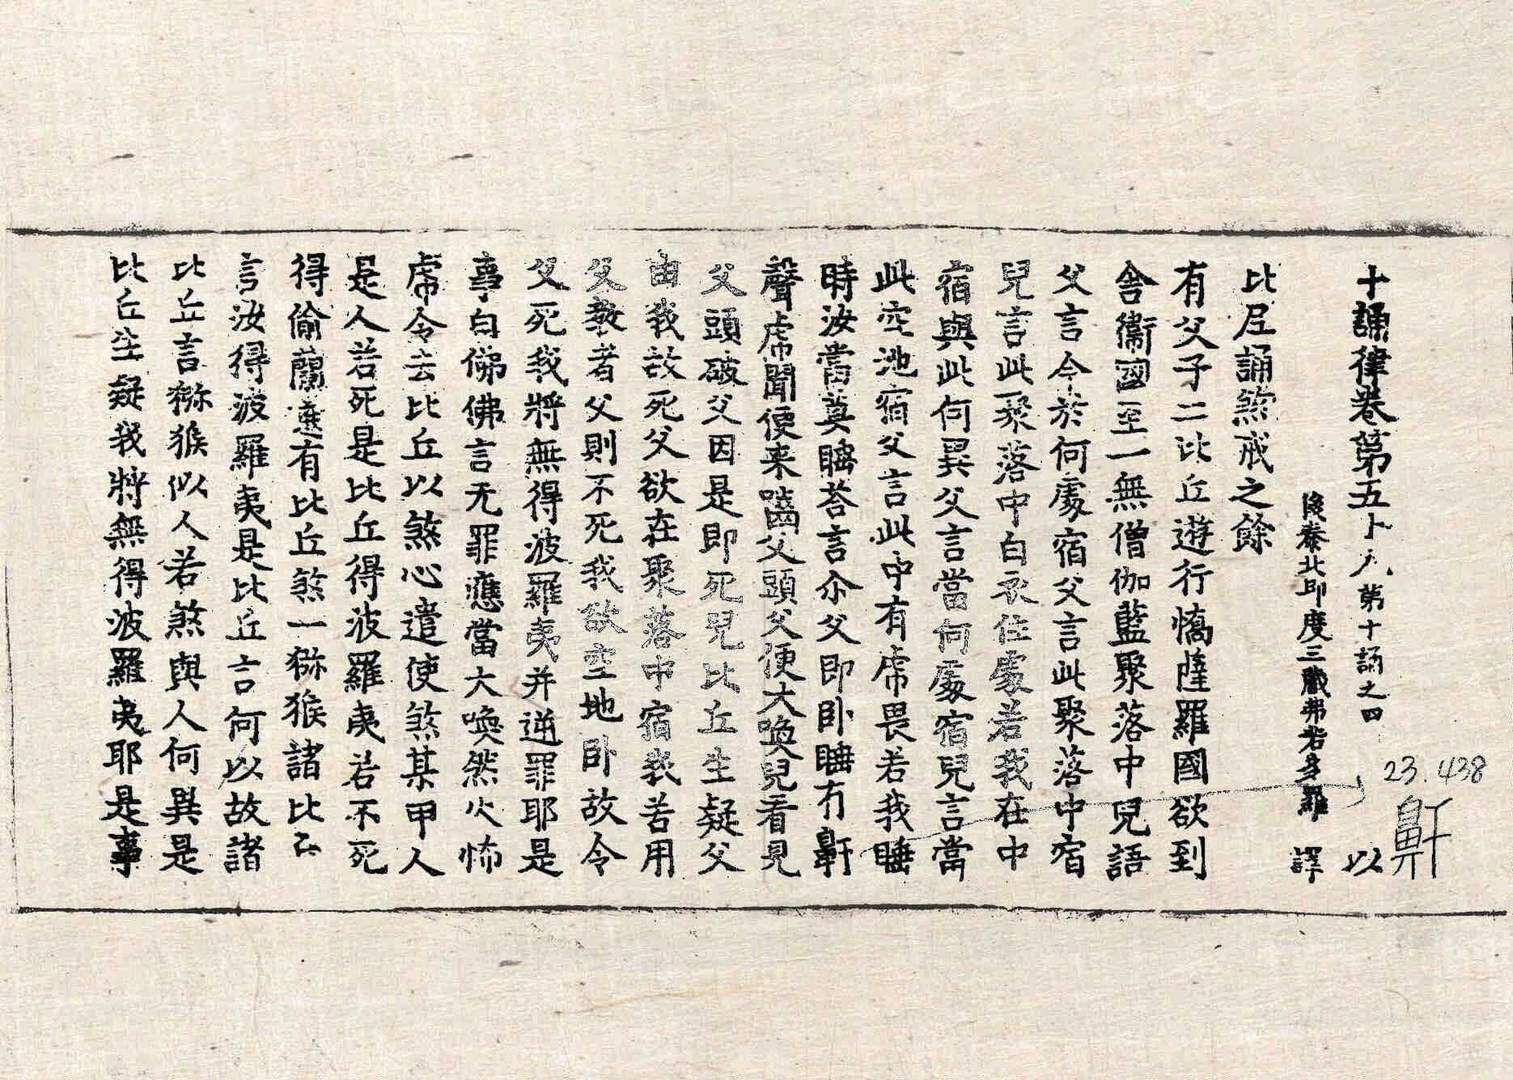 十誦律卷第五十九 第十誦之四 以
後秦北印度三藏弗若多羅 譯
比尼誦煞戒之餘
有父子二比丘遊行憍薩羅國欲到
舍衛國至一無僧伽藍聚落中兒語
父言今於何處宿父言此聚落中宿
兒言此聚落中白衣住處若我在中
宿與此何異父言當何處宿兒言當
此空地宿父言此中有虎畏若我睡
時汝當莫睡荅言尒父即卧睡有鼾
聲虎聞便来嚙父頭父便大喚兒看見
父頭破父因是即死兒比丘生疑父
由我故死父欲在聚落中宿我若用
父教者父則不死我欲空地卧故令
父死我將無得波羅夷并逆罪耶是
事白佛佛言无罪應當大喚然火怖
虎令去比丘以煞心遣使煞某甲人
是人若死是比丘得波羅夷若不死
得偷蘭遮有比丘煞一獼猴諸比丘
言汝得波羅夷是比丘言何以故諸
比丘言獼猴似人若煞與人何異是
比丘生疑我將無得波羅夷耶是事
23.438
鼾